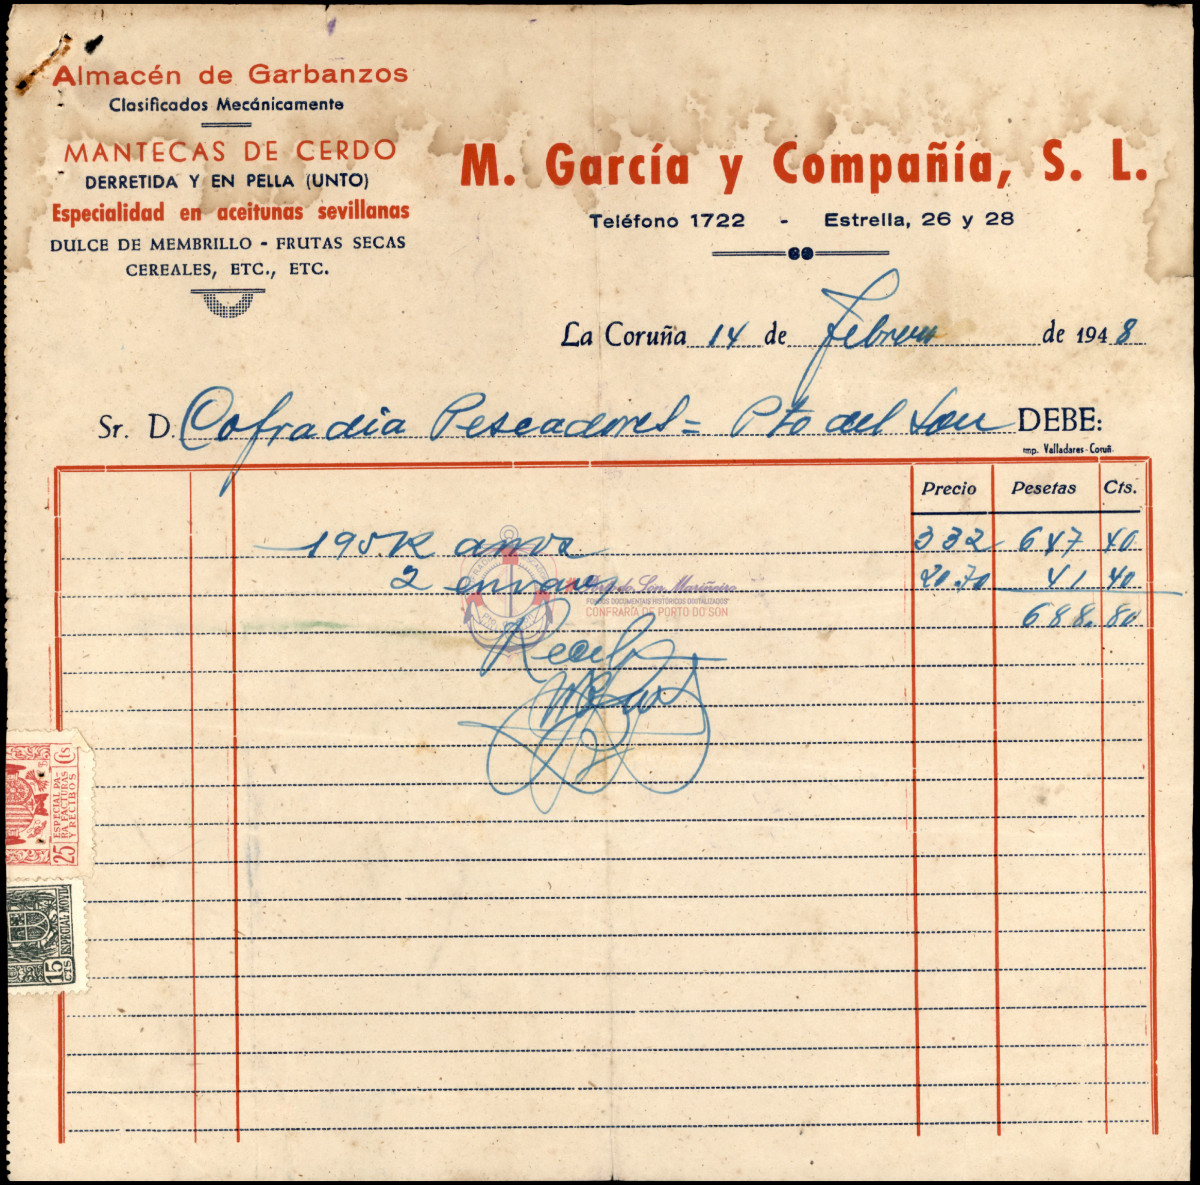 Almacén de Garbanzos
Clasificados Mecánicamente
MANTECAS DE CERDO
DERRETIDA Y EN PELLA (UNTO)
Especialidad en aceitunas sevillanas
DULCE DE MEMBRILLO - FRUTAS SECAS
CEREALES, ETC., ETC.
M. García y Compañía, S. L.
Teléfono 1722 - Estrella, 26 y 28
La Coruña 14 de Febrero de 1948
Sr. D. Cofradia Pescadores = Pto del Son DEBE:
Imp. Valladares-Coruñ.
Precio Pesetas Cts.
195 K arroz 332 647 40
2 envases 20.70 41 40
688.80
Recibí
Porto do Son Mariñeiro
FONDOS DOCUMENTAIS HISTÓRICOS DIGITALIZADOS
CONFRARÍA DE PORTO DO SON
25 Cts
ESPECIAL PA-
RA FACTURAS
Y RECIBOS
15 CTS
ESPECIAL MOVIL